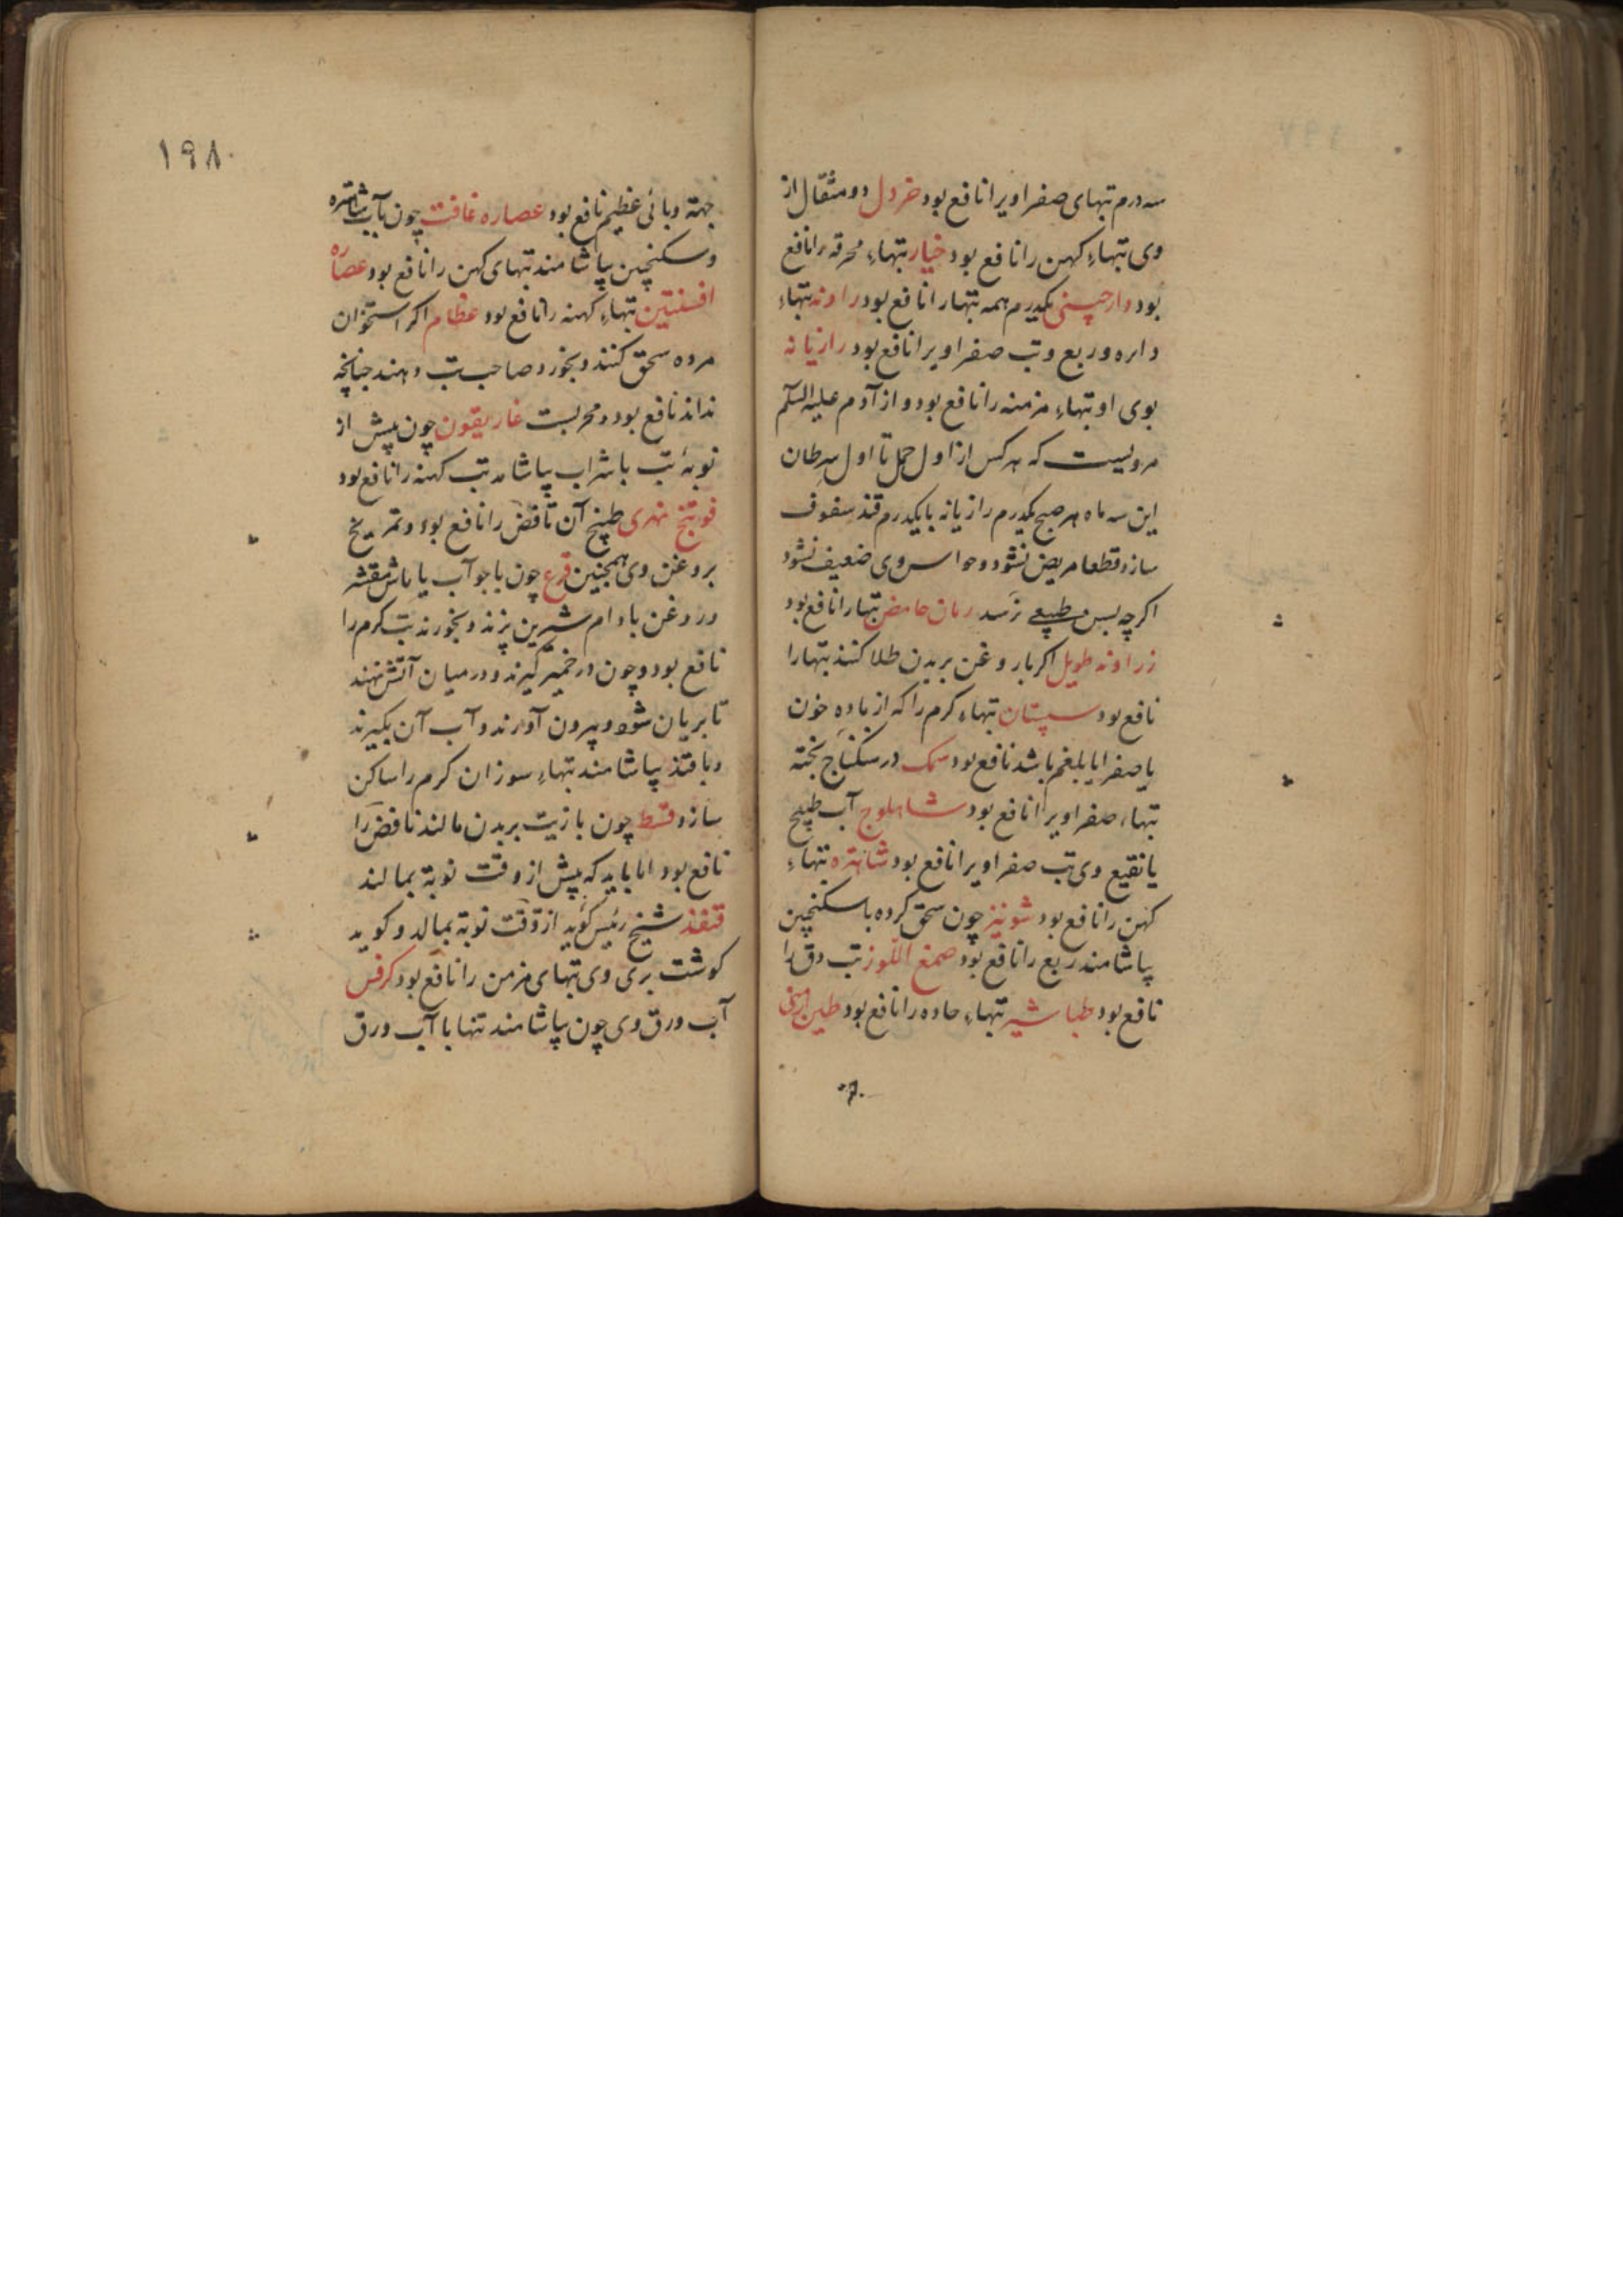 سه درم تبهای صفراویرا نافع بود خردل دو مثقال از
وی تبهاء کهن را نافع بود خیار تبهاء محرقه را نافع
بود دارچینی یکدرم همه تبهارا نافع بود راوند تبهاء
دایره و ربع و تب صفراویرا نافع بود رازیانه
بوی او تبهاء مزمنه را نافع بود و از آدم علیه السلم
مرویست که هر کس از اول حمل تا اول سرطان
این سه ماه هر صبح یکدرم رازیانه با یکدرم قند سفوف
سازد قطعا مریض نشود و حواس وی ضعیف نشود
اکرچه بسن طبیعے رسد رمان حامض تبهارا نافع بود
زراوند طویل اکر با روغن بر بدن طلا کنند تبهارا
نافع بود سپستان تبهاء کرم را که از ماده خون
یا صفرا یا بلغم باشد نافع بود سمک در سکباج پخته
تبهاء صفراویرا نافع بود شاهلوج آب طبیخ
یا نقیع وی تب صفراویرا نافع بود شاهتره تبهاء
کهن را نافع بود شونیز چون سحق کرده با سکنجبین
بیاشامند ربع را نافع بود صمغ اللوز تب دق را
نافع بود طباشیر تبهاء حاده را نافع بود طین ارمنی
۱۹۸
جهة وبائی عظیم نافع بود عصاره غافت چون بآب شاهتره
و سکنجبین بیاشامند تبهای کهن را نافع بود عصاره
افسنتین تبهاء کهنه را نافع بود عظام اکر استخوان
مرده سحق کنند و بخورد صاحب تب دهند چنانچه
نداند نافع بود و مجربست غاریقون چون پیش از
نوبهٔ تب با شراب بیاشامد تب کهنه را نافع بود
فوتنج نهری طبیخ آن نافض را نافع بود و تمریخ
بروغن وی همچنین قرع چون با جو آب یا ماش مقشر
و روغن بادام شیرین پزند و بخورند تب کرم را
نافع بود و چون در خمیر کیرند و در میان آتش نهند
تا بریان شود و بیرون آورند و آب آن بکیرند
و با قند بیاشامند تبهاء سوزان کرم را ساکن
سازد قسط چون با زیت بر بدن مالند نافض را
نافع بود اما باید که پیش از وقت نوبة بمالند
قنفذ شیخ رئیس کوید از وقت نوبة بمالد و کوید
کوشت بری وی تبهای مزمن را نافع بود کرفس
آب ورق وی چون بیاشامند تنها یا با آب ورق